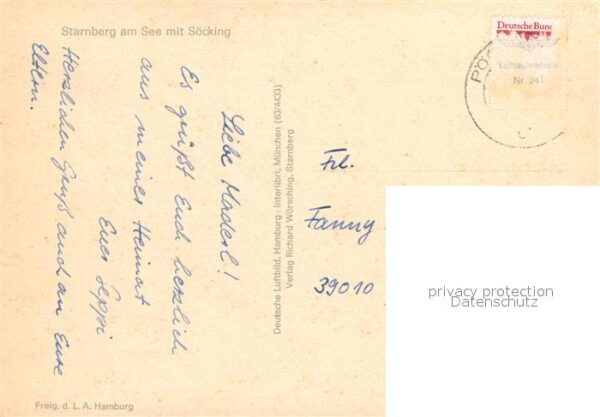 Starnberg am See mit Söcking
Liebe Maderl!
Es grüßt Euch herzlich
aus meiner Heimat
Euer Seppi
Herzlichen Gruß auch an Eure
Eltern.
Freig. d. L. A. Hamburg
Deutsche Luftbild, Hamburg · Interlibri, München (63/4433)
Verlag Richard Wörsching, Starnberg
Deutsche Bund
PÖ
Luftaufnahme
Nr. 241
Frl.
Fanny
39010
privacy protection
Datenschutz